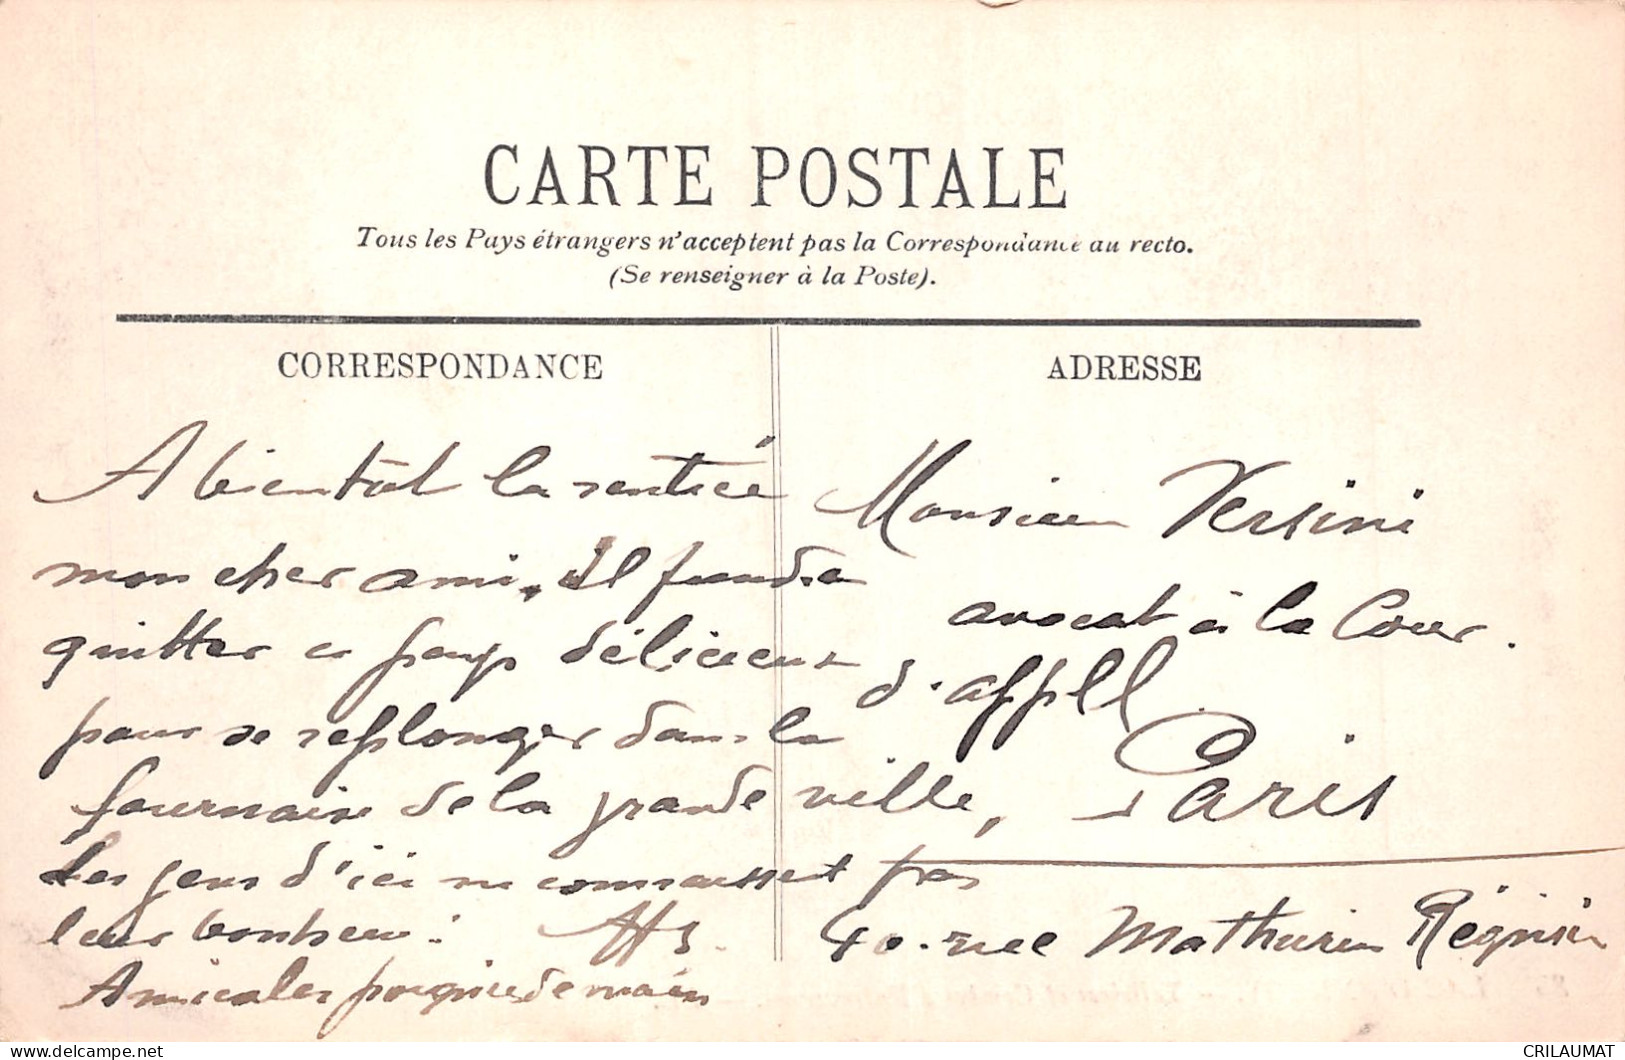 CARTE POSTALE
Tous les Pays étrangers n'acceptent pas la Correspondance au recto.
(Se renseigner à la Poste).
CORRESPONDANCE
A bientôt la rentrée
mon cher ami, Il faudra
quitter ce pays délicieux
pour se replonger dans la
fournaise de la grande ville,
les gens d'ici ne connaissent pas
leur bonheur!
Amicales poignées de main
ADRESSE
Monsieur Versini
avocat à la Cour.
d'appel
Paris
40. rue Mathurin Régnier
CRILAUMAT